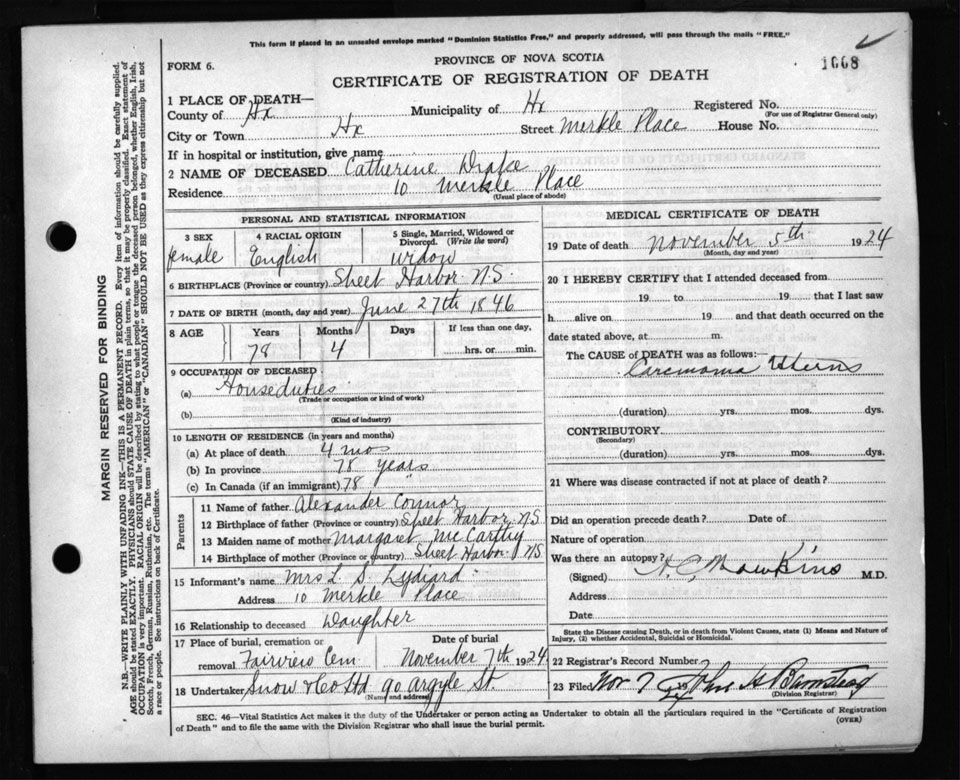 This form if placed in an unsealed envelope marked "Dominion Statistics Free," and properly addressed, will pass through the mails "FREE."
FORM 6.
PROVINCE OF NOVA SCOTIA
CERTIFICATE OF REGISTRATION OF DEATH
1668
1 PLACE OF DEATH—
County of Hx Municipality of Hx Registered No.
(For use of Registrar General only)
City or Town Hx Street Merkle Place House No.
If in hospital or institution, give name
2 NAME OF DECEASED Catherine Drake
Residence 10 Merkle Place
(Usual place of abode)
PERSONAL AND STATISTICAL INFORMATION
3 SEX 4 RACIAL ORIGIN 5 Single, Married, Widowed or Divorced. (Write the word)
female English widow
6 BIRTHPLACE (Province or country) Sheet Harbor NS.
7 DATE OF BIRTH (month, day and year) June 27th 1846
8 AGE Years Months Days If less than one day,
78 4 hrs. or min.
9 OCCUPATION OF DECEASED
(a) Houseduties
(Trade or occupation or kind of work)
(b)
(Kind of industry)
10 LENGTH OF RESIDENCE (in years and months)
(a) At place of death 4 mos
(b) In province 78 years
(c) In Canada (if an immigrant) 78 "
Parents
11 Name of father Alexander Connor
12 Birthplace of father (Province or country) Sheet Harbor NS
13 Maiden name of mother Margaret McCarthy
14 Birthplace of mother (Province or country) Sheet Harbor NS
15 Informant's name Mrs L. S. Lydiard
Address 10 Merkle Place
16 Relationship to deceased Daughter
17 Place of burial, cremation or Date of burial
removal Fairview Cem November 7th 1924
18 Undertaker Snow & Co Ltd 90 Argyle St.
(Name and address)
MEDICAL CERTIFICATE OF DEATH
19 Date of death November 5th 1924
(Month, day and year)
20 I HEREBY CERTIFY that I attended deceased from
19 to 19 that I last saw
h alive on 19 and that death occurred on the
date stated above, at m.
The CAUSE OF DEATH was as follows:—
Carcinoma Uterus
(duration) yrs. mos. dys.
CONTRIBUTORY
(Secondary)
(duration) yrs. mos. dys.
21 Where was disease contracted if not at place of death?
Did an operation precede death? Date of
Nature of operation
Was there an autopsy?
(Signed) Mawkins M.D.
Address
Date
State the Disease causing Death, or in death from Violent Causes, state (1) Means and Nature of
Injury, (2) whether Accidental, Suicidal or Homicidal.
22 Registrar's Record Number
23 Filed Nov 7 19 John H Barnstead
(Division Registrar)
SEC. 46—Vital Statistics Act makes it the duty of the Undertaker or person acting as Undertaker to obtain all the particulars required in the "Certificate of Registration
of Death" and to file the same with the Division Registrar who shall issue the burial permit.
(OVER)
MARGIN RESERVED FOR BINDING
N.B.—WRITE PLAINLY WITH UNFADING INK—THIS IS A PERMANENT RECORD. Every item of information should be carefully supplied.
AGE should be stated EXACTLY. PHYSICIANS should STATE CAUSE OF DEATH in plain terms, so that it may be properly classified. Exact statement of
OCCUPATION is very important. RACIAL ORIGIN will be described by stating to what people or tongue the deceased person belonged, whether English, Irish,
Scotch, French, German, Russian, Ruthenian, etc. The terms "AMERICAN" or "CANADIAN" SHOULD NOT BE USED as they express citizenship but not
a race or people. See instructions on back of Certificate.